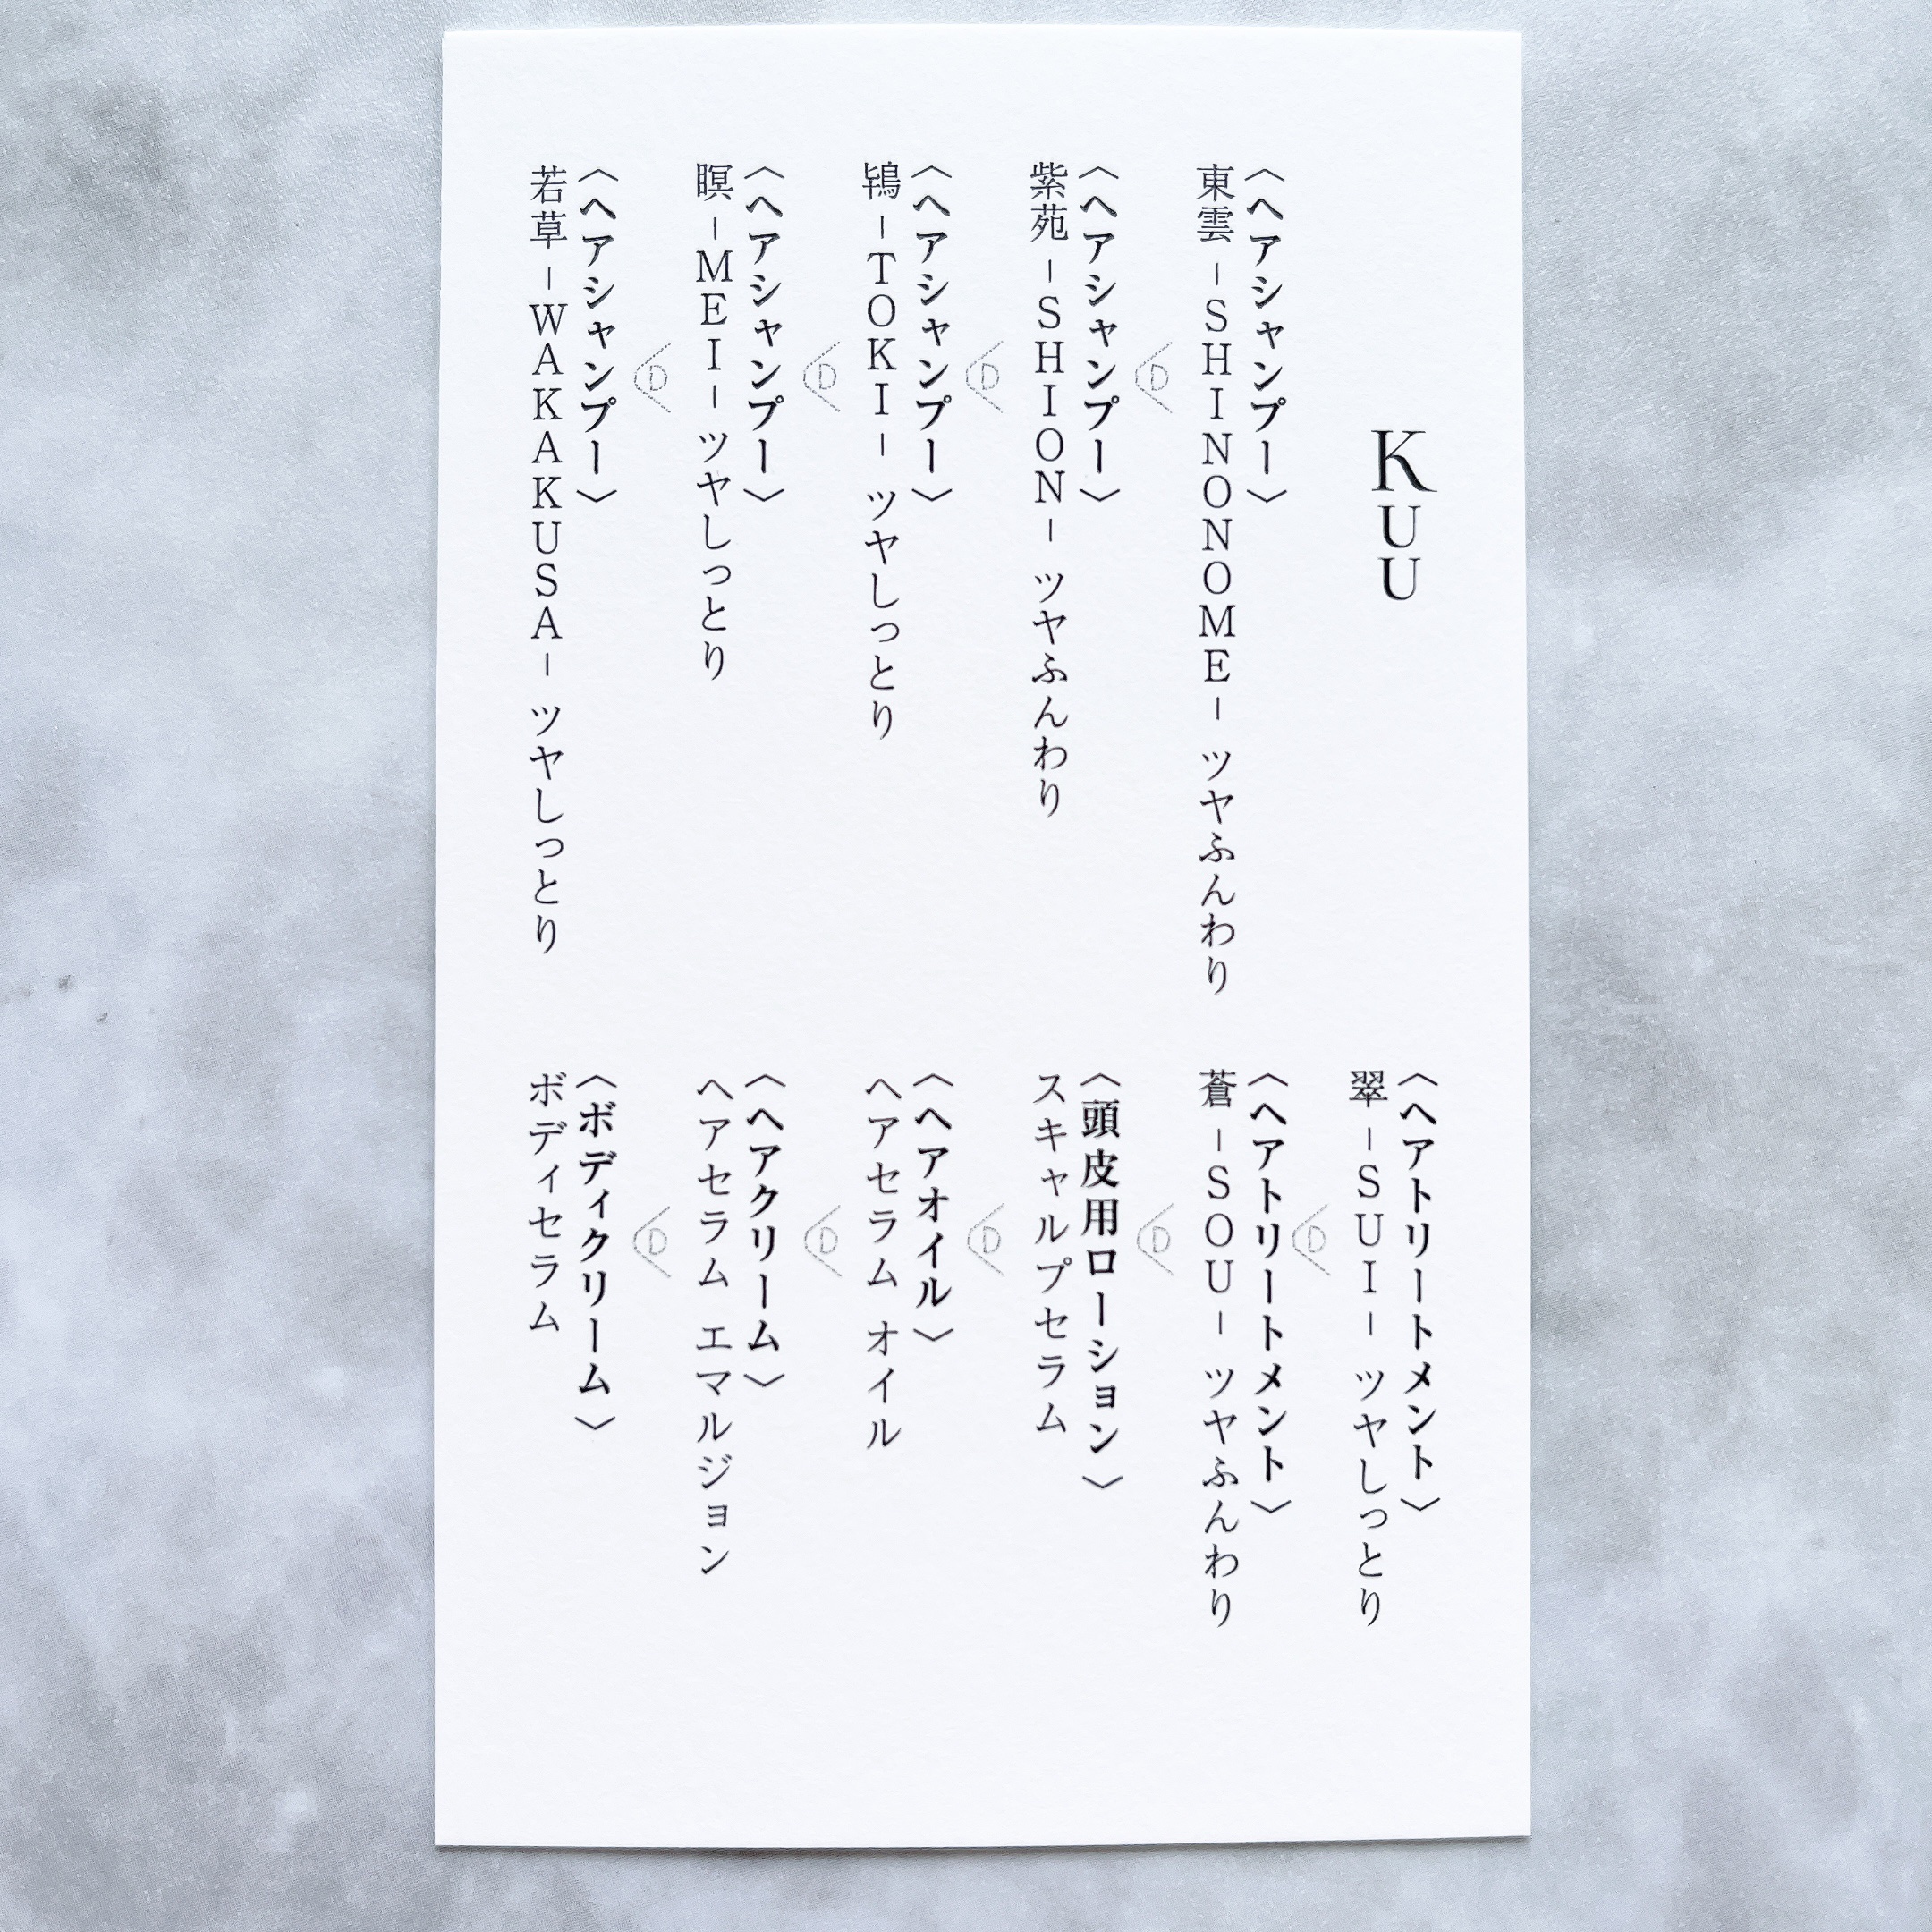 KUU
〈ヘアシャンプー〉
東雲 –SHINONOME– ツヤふんわり
〈ヘアシャンプー〉
紫苑 –SHION– ツヤふんわり
〈ヘアシャンプー〉
鴇 –TOKI– ツヤしっとり
〈ヘアシャンプー〉
瞑 –MEI– ツヤしっとり
〈ヘアシャンプー〉
若草 –WAKAKUSA– ツヤしっとり
〈ヘアトリートメント〉
翠 –SUI– ツヤしっとり
〈ヘアトリートメント〉
蒼 –SOU– ツヤふんわり
〈頭皮用ローション〉
スキャルプセラム
〈ヘアオイル〉
ヘアセラム オイル
〈ヘアクリーム〉
ヘアセラム エマルジョン
〈ボディクリーム〉
ボディセラム